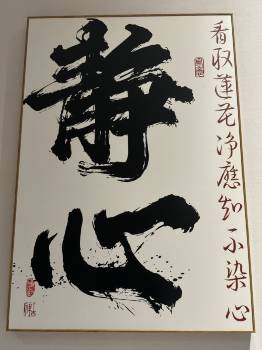 看取莲花净應知不染心
静心